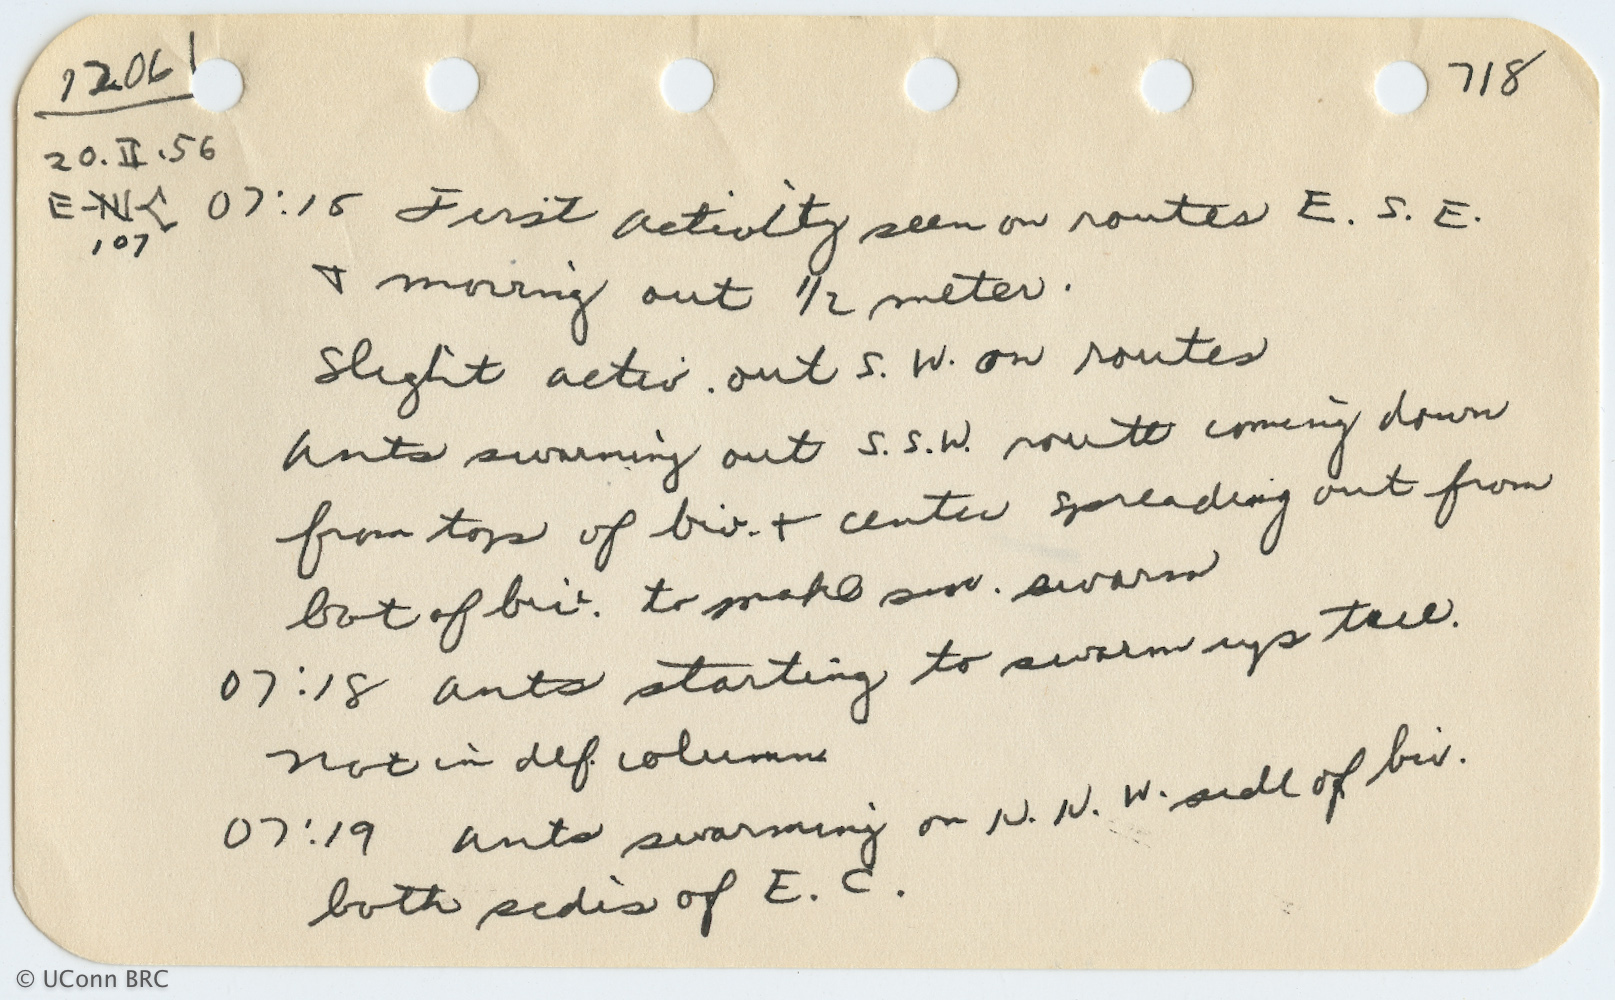 12061 718
20.II.56
E-N-C 07:15 First activity seen on routes E. S. E.
107
+ moving out 1/2 meter.
Slight activ. out S. W. on routes
Ants swarming out S.S.W. route coming down
from top of biv. + center spreading out from
bot of biv. to make swarm
07:18 ants starting to swarm up tree.
not in def. column
07:19 ants swarming on N. N. W. side of biv.
both sides of E. C.
© UConn BRC